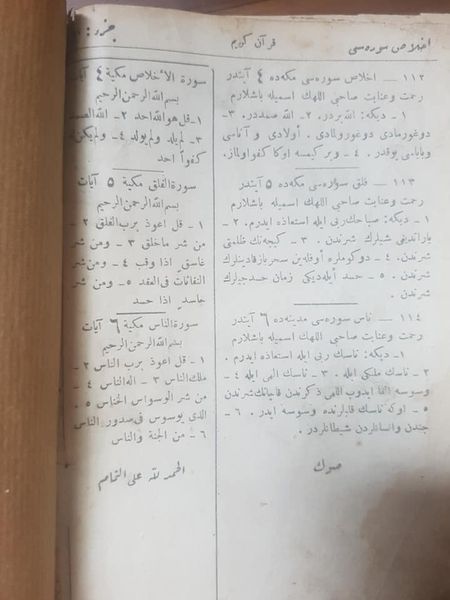 اخلاص سوره‌سی
قرآن كريم
جزء :
١١٢ — اخلاص سوره‌سی مكه‌ده ٤ آیتدر
رحمت و عنایت صاحبی اللهك اسمیله باشلارم
١ - دیكه: الله بردر. ٢ - الله صمددر. ٣ -
دوغورمادی دوغورولمادی. اولادی و آناسی
وبابایی یوقدر. ٤ - و بر كیمسه اوكا كفو اولماز.
١١٣ — فلق سوره‌سی مكه‌ده ٥ آیتدر
رحمت و عنایت صاحبی اللهك اسمیله باشلارم
١ - دیكه: صباحك ربی ایله استعاذه ایدرم. ٢ -
یاراتدیغی شیلرك شرندن. ٣ - كیجه‌نك ظلمتی
شرندن. ٤ - دوكوملره اوفله‌ین سحرباز قادینلرك
شرندن. ٥ - حسد ایله‌دیكی زمان حسدجیلرك
شرندن.
١١٤ — ناس سوره‌سی مدینه‌ده ٦ آیتدر
رحمت و عنایت صاحبی اللهك اسمیله باشلارم
١ - دیكه: ناسك ربی ایله استعاذه ایدرم.
٢ - ناسك ملكی ایله. ٣ - ناسك الهی ایله. ٤ -
وسوسه القا ایدوب اللهی ذكرندن قاچانك شرندن
٥ - اوكه ناسك قلبلرنده وسوسه ایدر. ٦ -
جندن وانسانلردن شیطانلردر.
صوك
سورة الأخلاص مكیة ٤ آیات
بسم الله الرحمن الرحیم
١- قل هو الله احد ٢- الله الصمد
٣- لم یلد ولم یولد ٤- ولم یكن له
كفواً احد
سورة الفلق مكیة ٥ آیات
بسم الله الرحمن الرحیم
١- قل اعوذ برب الفلق ٢-
من شر ماخلق ٣- ومن شر
غاسق اذا وقب ٤- ومن شر
النفاثات فی العقد ٥- ومن شر
حاسد اذا حسد
سورة الناس مكیة ٦ آیات
بسم الله الرحمن الرحیم
١- قل اعوذ برب الناس ٢-
ملك الناس ٣- اله الناس ٤-
من شر الوسواس الخناس ٥-
الذی یوسوس فی صدور الناس
٦- من الجنة والناس
الحمد لله علی التمام